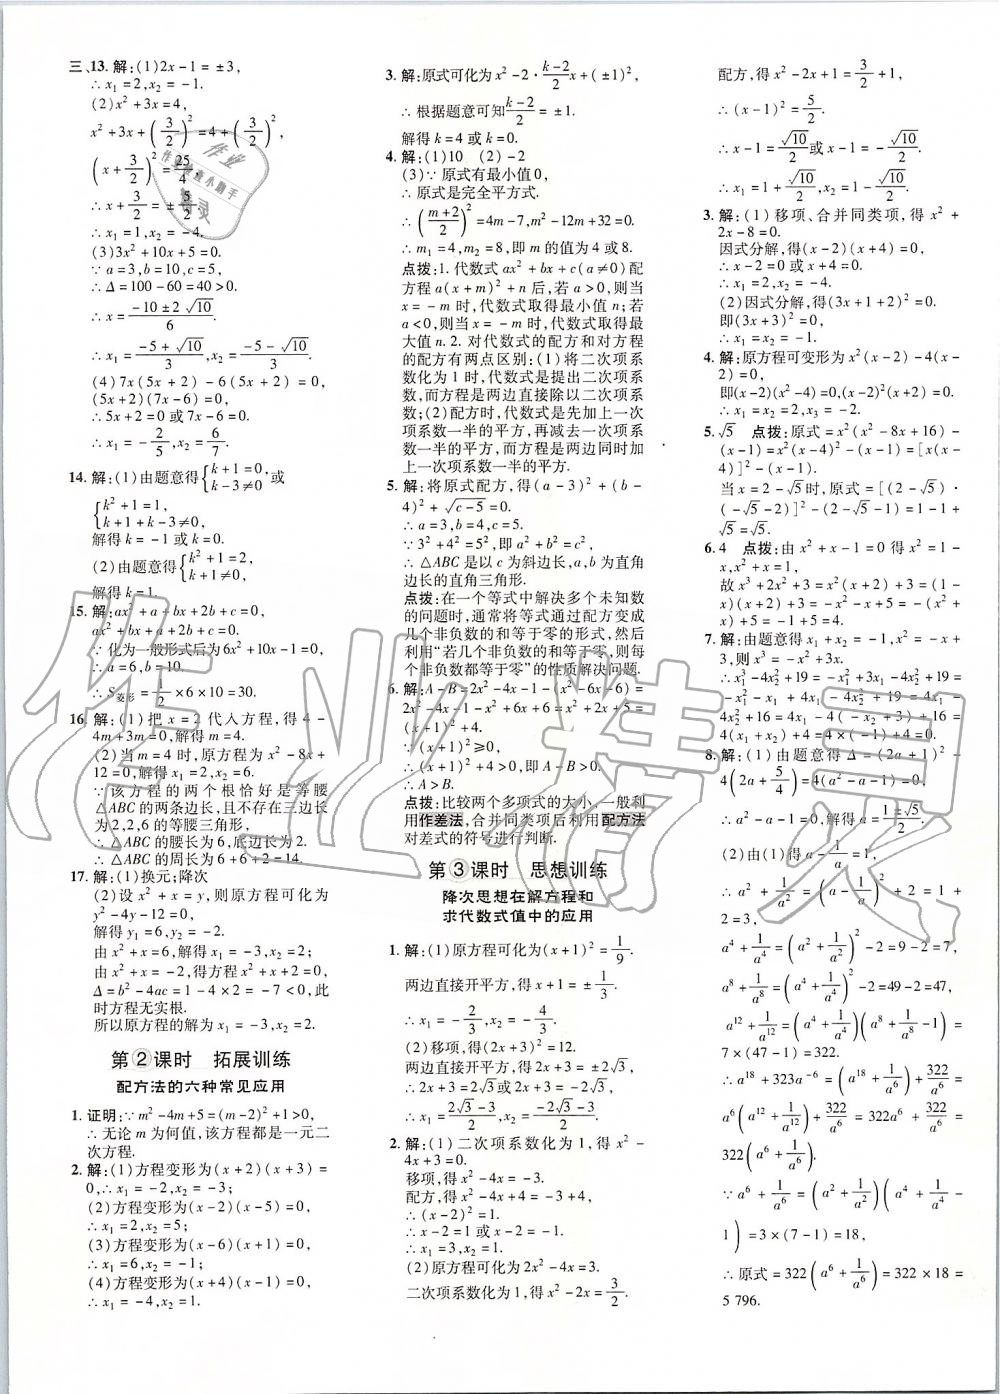 三、13. 解:(1)2x-1=±3,
∴x₁=2,x₂=-1.
(2)x²+3x=4,
x²+3x+(3/2)²=4+(3/2)²,
(x+3/2)²=25/4,
∴x+3/2=±5/2,
∴x₁=1,x₂=-4.
(3)3x²+10x+5=0.
∵a=3,b=10,c=5,
∴Δ=100-60=40>0.
∴x=(-10±2√10)/6.
∴x₁=(-5+√10)/3,x₂=(-5-√10)/3.
(4)7x(5x+2)-6(5x+2)=0,
(5x+2)(7x-6)=0,
∴5x+2=0或7x-6=0.
∴x₁=-2/5,x₂=6/7.
14. 解:(1)由题意得{k+1=0, k-3≠0或
{k²+1=1, k+1+k-3≠0,
解得k=-1或k=0.
(2)由题意得{k²+1=2, k+1≠0,
解得k=1.
15. 解:ax²+a+bx+2b+c=0,
ax²+bx+a+2b+c=0.
∵化为一般形式后为6x²+10x-1=0,
∴a=6,b=10.
∴S菱形=1/2×6×10=30.
16. 解:(1)把x=2代入方程,得4-
4m+3m=0,解得m=4.
(2)当m=4时,原方程为x²-8x+
12=0,解得x₁=2,x₂=6.
∵该方程的两个根恰好是等腰
△ABC的两条边长,且不存在三边长
为2,2,6的等腰三角形,
∴△ABC的腰长为6,底边长为2.
∴△ABC的周长为6+6+2=14.
17. 解:(1)换元;降次
(2)设x²+x=y,原方程可化为
y²-4y-12=0,
解得y₁=6,y₂=-2.
由x²+x=6,得x₁=-3,x₂=2.
由x²+x=-2,得方程x²+x+2=0,
Δ=b²-4ac=1-4×2=-7<0,此
时方程无实根.
所以原方程的解为x₁=-3,x₂=2.
第②课时 拓展训练
配方法的六种常见应用
1. 证明:∵m²-4m+5=(m-2)²+1>0,
∴无论m为何值,该方程都是一元二
次方程.
2. 解:(1)方程变形为(x+2)(x+3)=
0,∴x₁=-2,x₂=-3;
(2)方程变形为(x-2)(x-5)=0,
∴x₁=2,x₂=5;
(3)方程变形为(x-6)(x+1)=0,
∴x₁=6,x₂=-1;
(4)方程变形为(x+4)(x-1)=0,
∴x₁=-4,x₂=1.
3. 解:原式可化为x²-2·(k-2)/2 x+(±1)²,
∴根据题意可知(k-2)/2=±1.
解得k=4或k=0.
4. 解:(1)10 (2)-2
(3)∵原式有最小值0,
∴原式是完全平方式.
∴((m+2)/2)²=4m-7,m²-12m+32=0.
∴m₁=4,m₂=8,即m的值为4或8.
点拨:1.代数式ax²+bx+c(a≠0)配
方程a(x+m)²+n后,若a>0,则当
x=-m时,代数式取得最小值n;若
a<0,则当x=-m时,代数式取得最
大值n.2.对代数式的配方和对方程
的配方有两点区别:(1)将二次项系
数化为1时,代数式是提出二次项系
数,而方程是两边直接除以二次项系
数;(2)配方时,代数式是先加上一次
项系数一半的平方,再减去一次项系
数一半的平方,而方程是两边同时加
上一次项系数一半的平方.
5. 解:将原式配方,得(a-3)²+(b-
4)²+√(c-5)=0.
∴a=3,b=4,c=5.
∵3²+4²=5²,即a²+b²=c²,
∴△ABC是以c为斜边长,a,b为直角
边长的直角三角形.
点拨:在一个等式中解决多个未知数
的问题时,通常将等式通过配方变成
几个非负数的和等于零的形式,然后
利用“若几个非负数的和等于零,则每
个非负数都等于零”的性质解决问题.
6. 解:A-B=2x²-4x-1-(x²-6x-6)=
2x²-4x-1-x²+6x+6=x²+2x+5=
(x+1)²+4.
∵(x+1)²≥0,
∴(x+1)²+4>0,即A-B>0.
∴A>B.
点拨:比较两个多项式的大小,一般利
用作差法,合并同类项后利用配方法
对差式的符号进行判断.
第③课时 思想训练
降次思想在解方程和
求代数式值中的应用
1. 解:(1)原方程可化为(x+1)²=1/9.
两边直接开平方,得x+1=±1/3.
∴x₁=-2/3,x₂=-4/3.
(2)移项,得(2x+3)²=12.
两边直接开平方,得2x+3=±2√3,
∴2x+3=2√3或2x+3=-2√3.
∴x₁=(2√3-3)/2,x₂=(-2√3-3)/2.
2. 解:(1)二次项系数化为1,得x²-
4x+3=0.
移项,得x²-4x=-3.
配方,得x²-4x+4=-3+4,
∴(x-2)²=1.
∴x-2=1或x-2=-1.
∴x₁=3,x₂=1.
(2)原方程可化为2x²-4x=3.
二次项系数化为1,得x²-2x=3/2.
配方,得x²-2x+1=3/2+1,
∴(x-1)²=5/2.
∴x-1=√10/2或x-1=-√10/2.
∴x₁=1+√10/2,x₂=1-√10/2.
3. 解:(1)移项、合并同类项,得x²+
2x-8=0.
因式分解,得(x-2)(x+4)=0.
∴x-2=0或x+4=0.
∴x₁=2,x₂=-4.
(2)因式分解,得(3x+1+2)²=0.
即(3x+3)²=0.
∴x₁=x₂=-1.
4. 解:原方程可变形为x²(x-2)-4(x-
2)=0,
即(x-2)(x²-4)=0,(x-2)²(x+2)=0.
∴x₁=x₂=2,x₃=-2.
5. √5 点拨:原式=x²(x²-8x+16)-
(x-1)=x²(x-4)²-(x-1)=[x(x-
4)]²-(x-1).
当x=2-√5时,原式=[(2-√5)·
(-√5-2)]²-(2-√5-1)=1-1+
√5=√5.
6. 4 点拨:由x²+x-1=0得x²=1-
x,x²+x=1.
故x³+2x²+3=x(x²+2x)+3=(1-
x)(x+2)+3=-x²-x+5=-(x²+
x)+5=-1+5=4.
7. 解:由题意得x₁+x₂=-1,x²=-x+
3,则x³=-x²+3x.
∴x₁³-4x₂²+19=-x₁²+3x₁-4x₂²+
19=x₁-3+3x₁-4x₂²+19=4x₁-
4x₂²+16=4x₁-4(-x₂+3)+16=
4(x₁+x₂)+4=4×(-1)+4=0.
8. 解:(1)由题意得Δ=(2a+1)²-
4(2a+5/4)=4(a²-a-1)=0,
∴a²-a-1=0,解得a=(1±√5)/2.
(2)由(1)得a-1/a=1,
∴a²+1/a²=(a-1/a)²+2=1+
2=3,
a⁴+1/a⁴=(a²+1/a²)²-2=9-2=7,
a⁸+1/a⁸=(a⁴+1/a⁴)²-2=49-2=47,
a¹²+1/a¹²=(a⁴+1/a⁴)(a⁸+1/a⁸-1)=
7×(47-1)=322.
∴a¹⁸+323a⁻⁶=a⁶(a¹²+1/a¹²)+322/a⁶=
a⁶(a¹²+1/a¹²)+322/a⁶=322a⁶+322/a⁶=
322(a⁶+1/a⁶).
∵a⁶+1/a⁶=(a²+1/a²)(a⁴+1/a⁴-
1)=3×(7-1)=18,
∴原式=322(a⁶+1/a⁶)=322×18=
5 796.
作业精灵